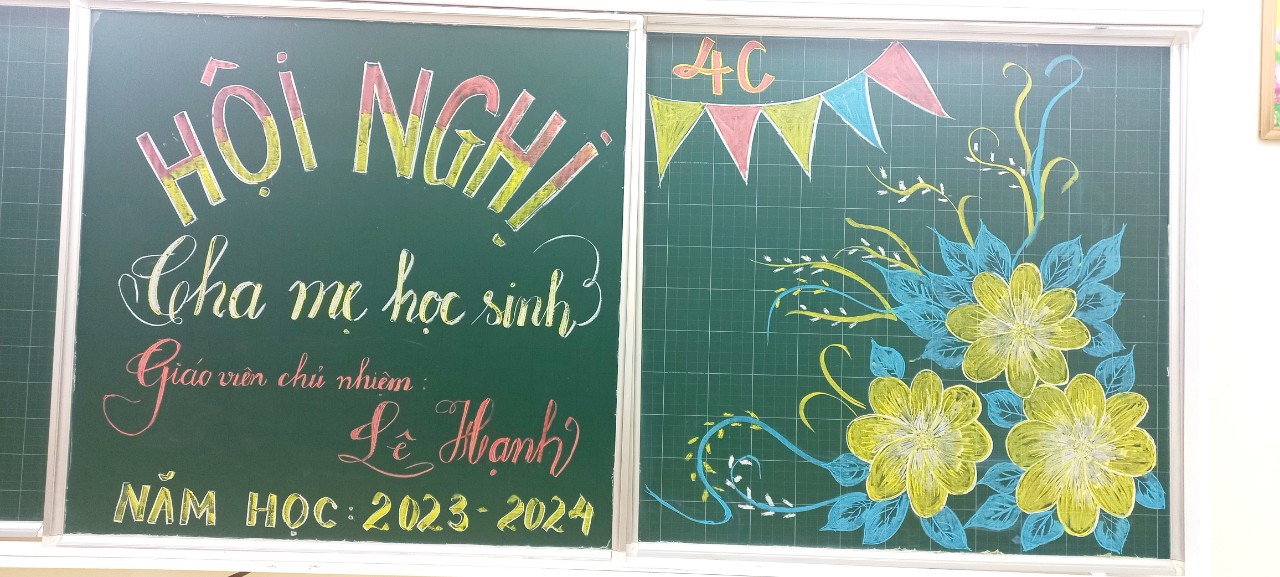 HỘI NGHỊ
Cha mẹ học sinh
Giáo viên chủ nhiệm:
Lê Hạnh
NĂM HỌC: 2023-2024
4C